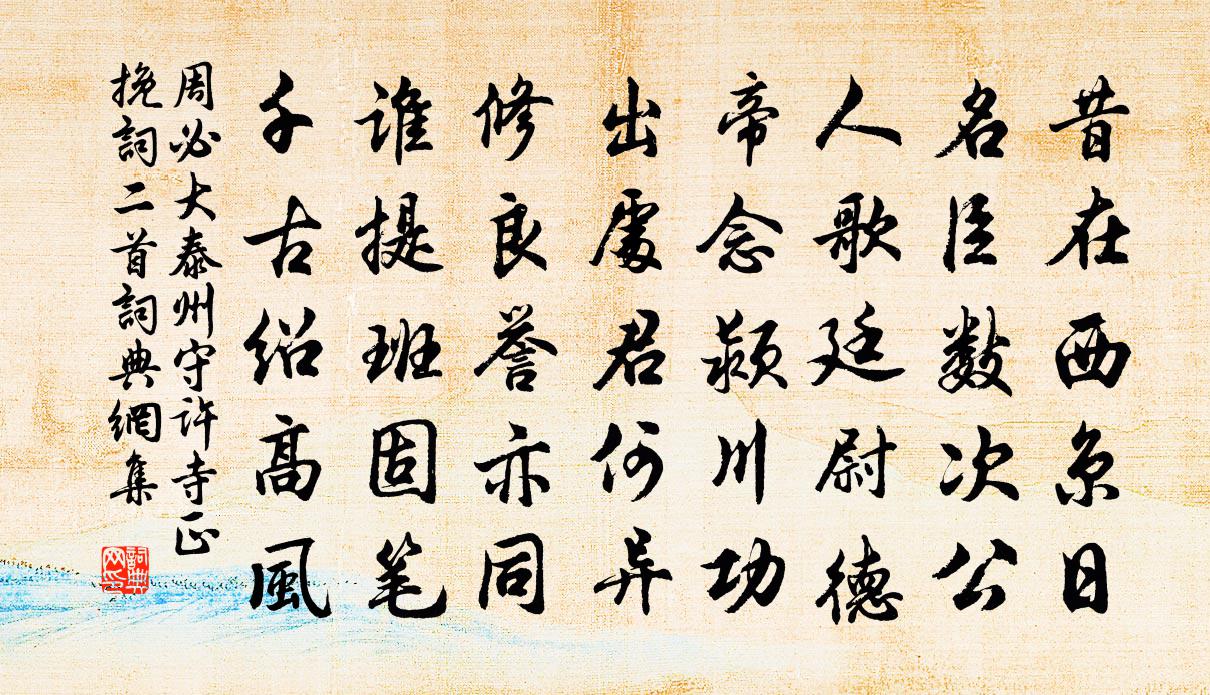 昔在西京日
名臣数次公
人歌廷尉德
帝念颍川功
出處君何异
修良誉亦同
谁提班固笔
千古绍高風
周必大泰州守许寺正
挽詞二首詞典網集
詞典網印